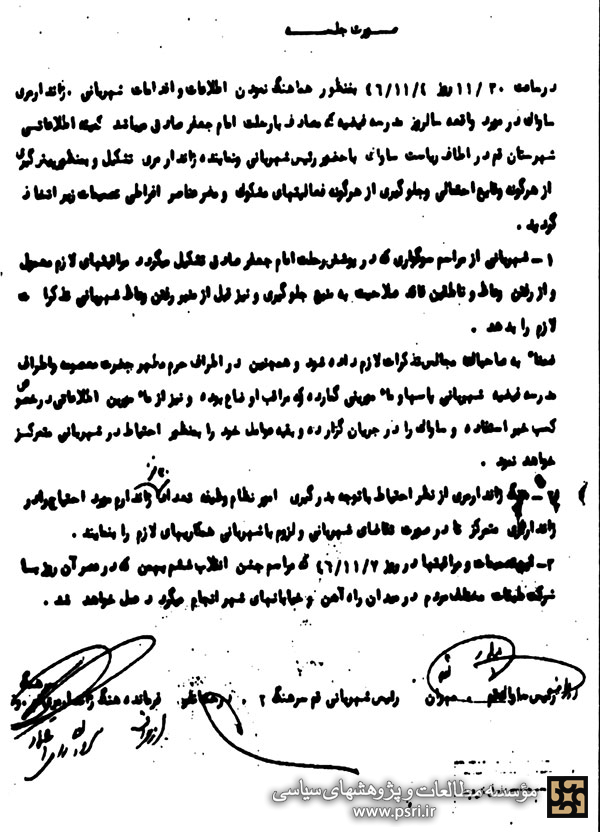 صورت جلسه
در ساعت ۱۱/۳۰ روز ۴۶/۱۱/۴ بمنظور هماهنگ نمودن اطلاعات و اقدامات شهربانی . ژاندارمری
ساواک در مورد واقعه سالروز مدرسه فیضیه که مصادف با رحلت امام جعفر صادق میباشد کمیته اطلاعاتی
شهرستان قم در اطاق ریاست ساواک با حضور رئیس شهربانی و نماینده ژاندارمری تشکیل و بمنظور پیش گیری
از هرگونه وقایع احتمالی و جلوگیری از هرگونه فعالیتهای مشکوک و مضر عناصر افراطی تصمیمات زیر اتخاذ
گردید .
۱ - شهربانی از مراسم سوگواری که در پوشش رحلت امام جعفر صادق تشکیل میگردد مراقبتهای لازم معمول
و از رفتن وعاظ و ناطقین فاقد صلاحیت به منبر جلوگیری و نیز قبل از منبر رفتن وعاظ شهربانی تذکرات
لازم را بدهد .
ضمناً به صاحبان مجالس تذکرات لازم داده شود و همچنین در اطراف حرم مطهر حضرت معصومه و اطراف
مدرسه فیضیه شهربانی پاسبان و مأمورینی گمارده که مراقب اوضاع بوده و نیز از مأمورین اطلاعاتی در خصوص
کسب خبر استفاده و ساواک را در جریان گزارده و بقیه عوامل خود را بمنظور احتیاط در شهربانی متمرکز
خواهد نمود .
۲ - هنگ ژاندارمری از نظر احتیاط با توجه بدرگیری امور نظام وظیفه تعداد ژاندارم مورد احتیاج را در
ژاندارمری متمرکز تا در صورت تقاضای شهربانی و لزوم با شهربانی همکاریهای لازم را بنمایند .
۳ - تصمیمات و مراقبتها در روز ۴۶/۱۱/۶ که مراسم جشن انقلاب ششم بهمن که در عصر آن روز با
شرکت طبقات مختلف مردم در میدان راه آهن و خیابانهای شهر انجام میگردد عمل خواهد شد .
رئیس ساواک قم . مهران رئیس شهربانی قم سرهنگ ۲ . فرمانده هنگ ژاندارمری قم
سرهنگ
مؤسسه مطالعات و پژوهشهای سیاسی
www.psri.ir